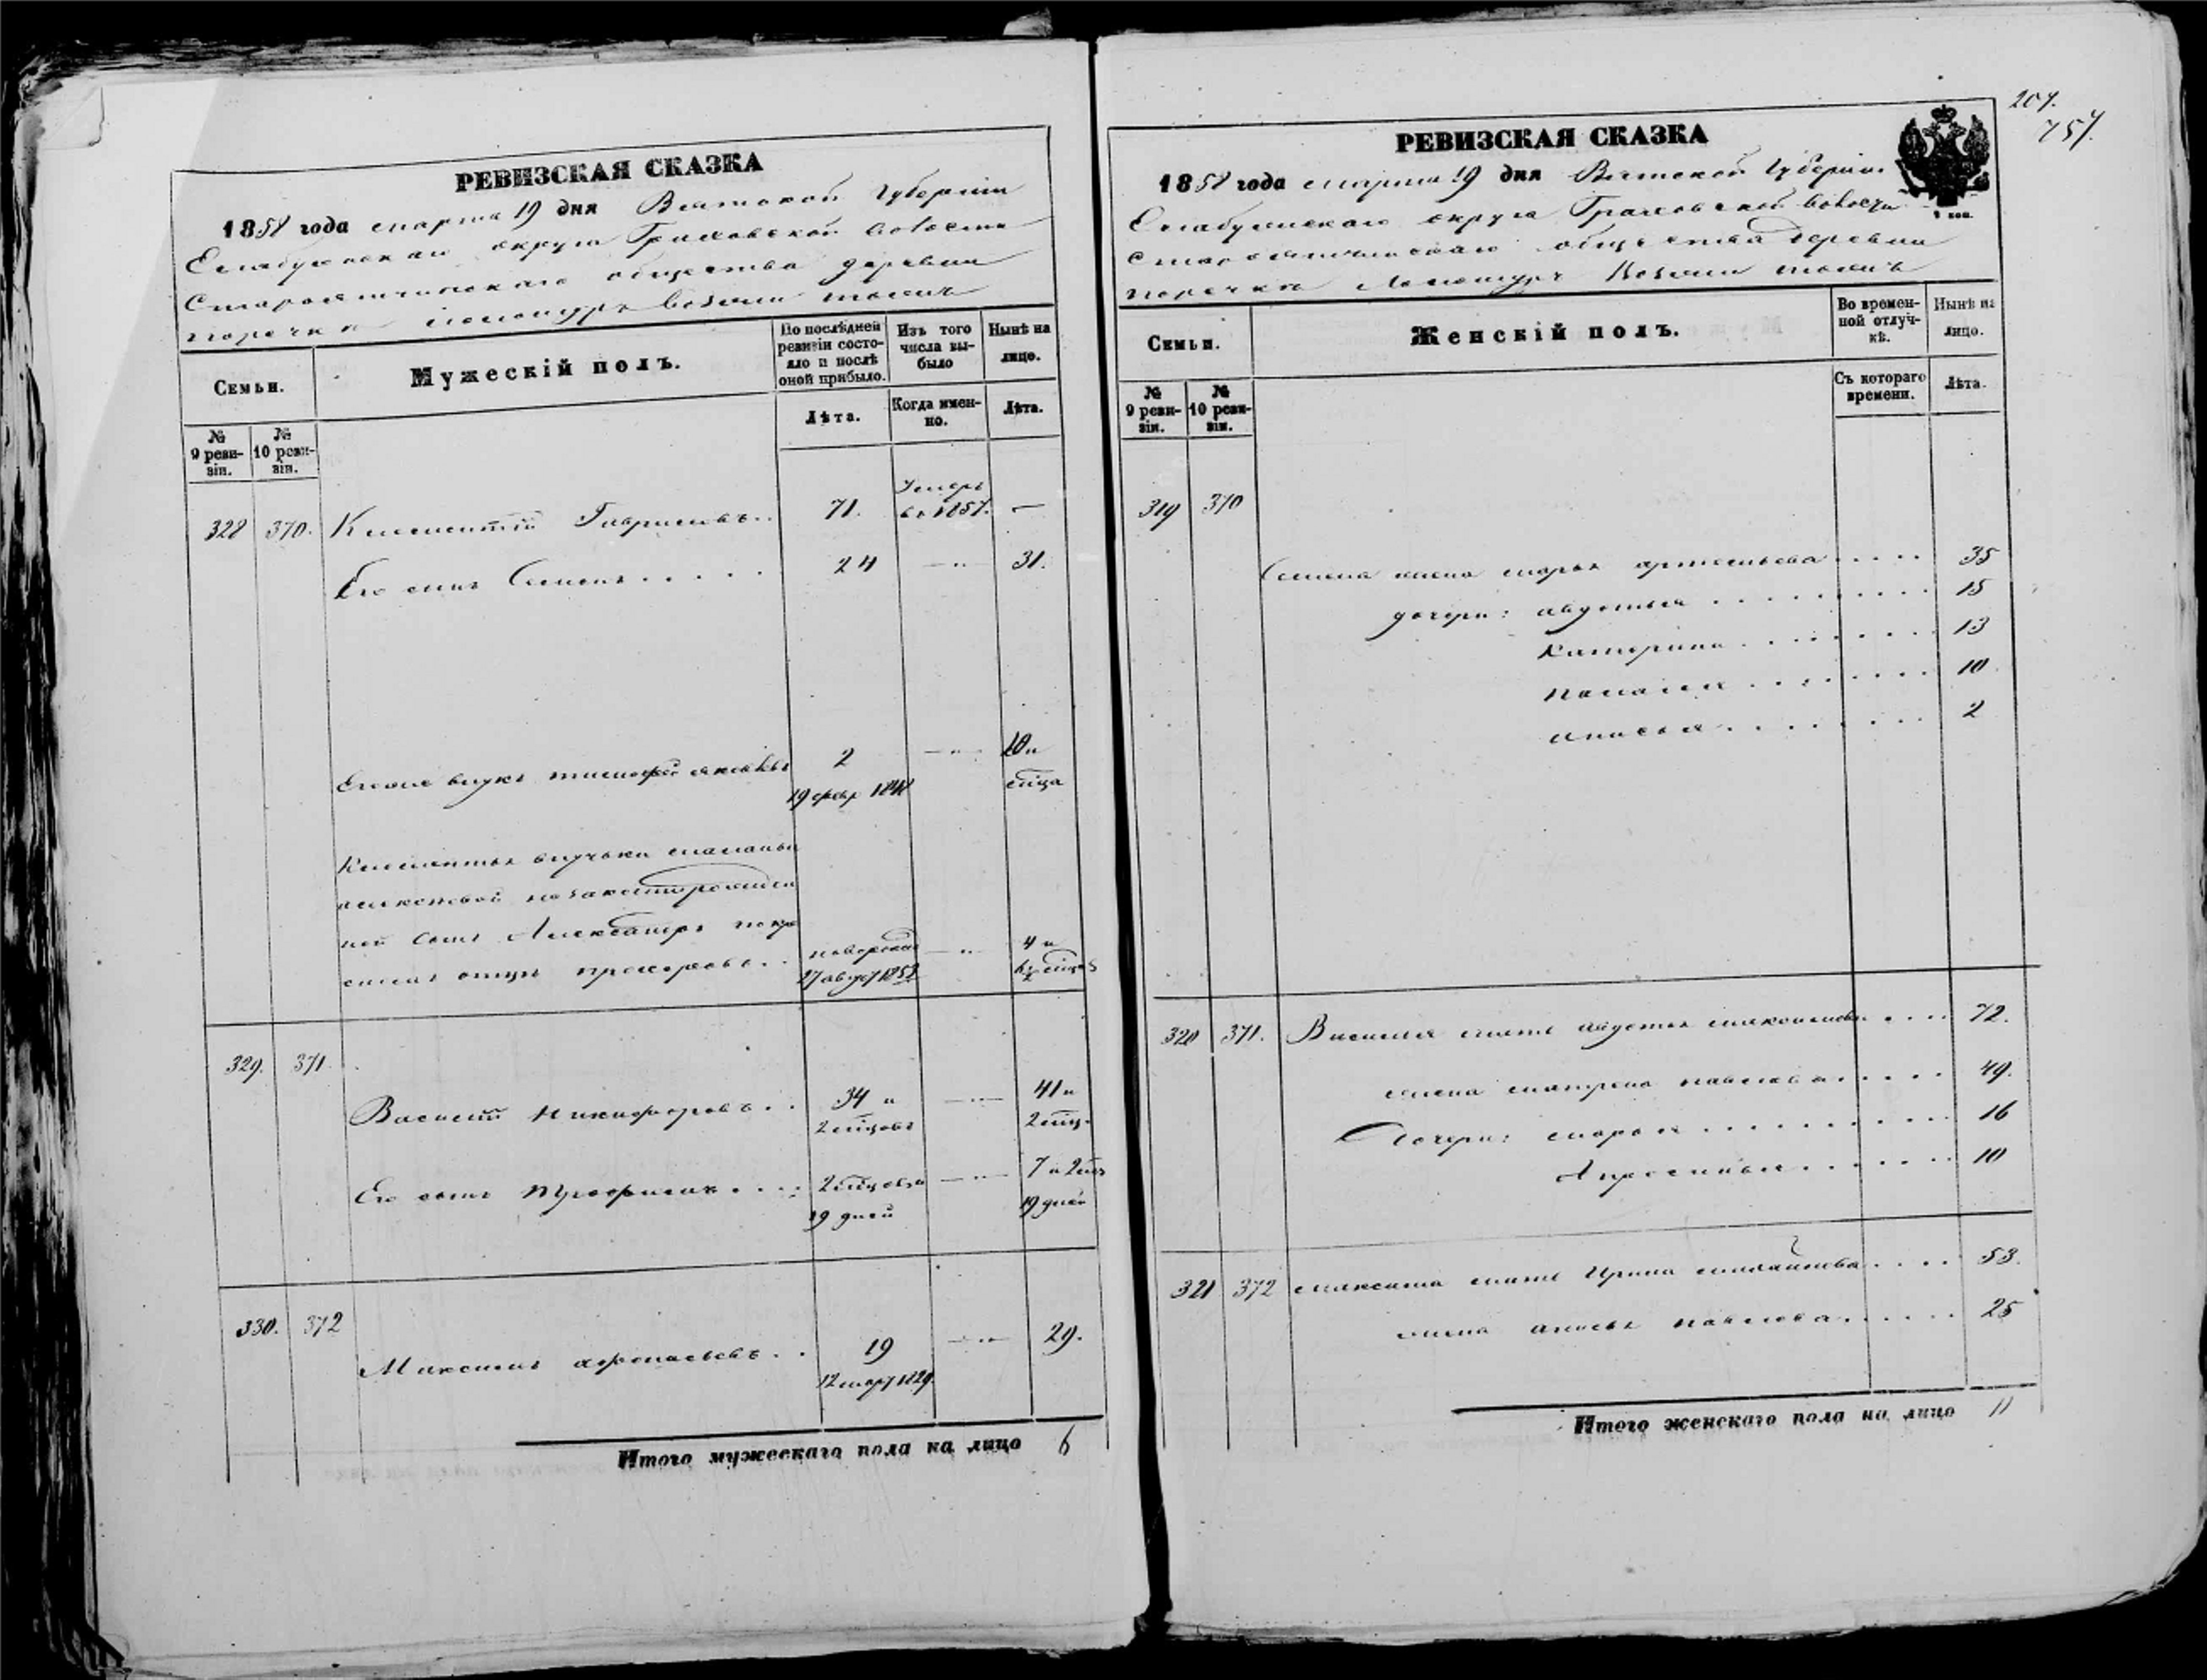 РЕВИЗСКАЯ СКАЗКА
1858 года марта 19 дня Вятской Губерніи
Елабужскаго округа Граховской волости
общества деревни
поречка
Семьи.
Мужескій полъ.
По послѣдней ревизіи состояло и послѣ оной прибыло.
Изъ того числа выбыло
Нынѣ на лицо.
№ 9 ревизіи.
№ 10 ревизіи.
Лѣта.
Когда именно.
Лѣта.
328 370. Климентій Гавриловъ.. 71. Умеръ въ 1857. —
Его сынъ Семенъ..... 24 —"— 31.
Егоже внукъ тимофей яковлевъ 2 —"— 10 и
19 февр 1848 м͠ца
Климентья внучьки маланьи
незаконнорожден
ной сынъ Александръ
прохоровъ.. новорожден —"— 4 и
27 август 1853 6½ м͠цовъ
329. 371.
Василій Никифоровъ.. 34 и —"— 41 и
2 м͠цовъ 2 м͠ц.
Его сынъ Трофимъ.... 2 м͠цовъ и —"— 7 и 2 м͠ц
19 дней 19 дней
330. 372
Максимъ афонасьевъ.. 19 —"— 29.
12 март 1829.
Итого мужескаго пола на лицо 6
207.
757.
РЕВИЗСКАЯ СКАЗКА
1858 года марта 19 дня Вятской Губерніи
1 коп.
Елабужскаго округа Граховской волости
общества деревни
поречка
Семьи.
Женскій полъ.
Во временной отлучкѣ.
Нынѣ на лицо.
№ 9 ревизіи.
№ 10 ревизіи.
Съ котораго времени.
Лѣта.
319 370
Семена жена марья артемьева.... 35
дочери: авдотья.......... 15
Катерина........ 13
пелагея........ 10
анисья........ 2
320 371. Василья мать авдотья максимова.... 72.
жена матрена павлова.... 49.
Дочери: марья.......... 16
Апросинья....... 10
321 372 максима мать Ирина михайлова.... 53.
жена анисья павлова...... 25
Итого женскаго пола на лицо 11